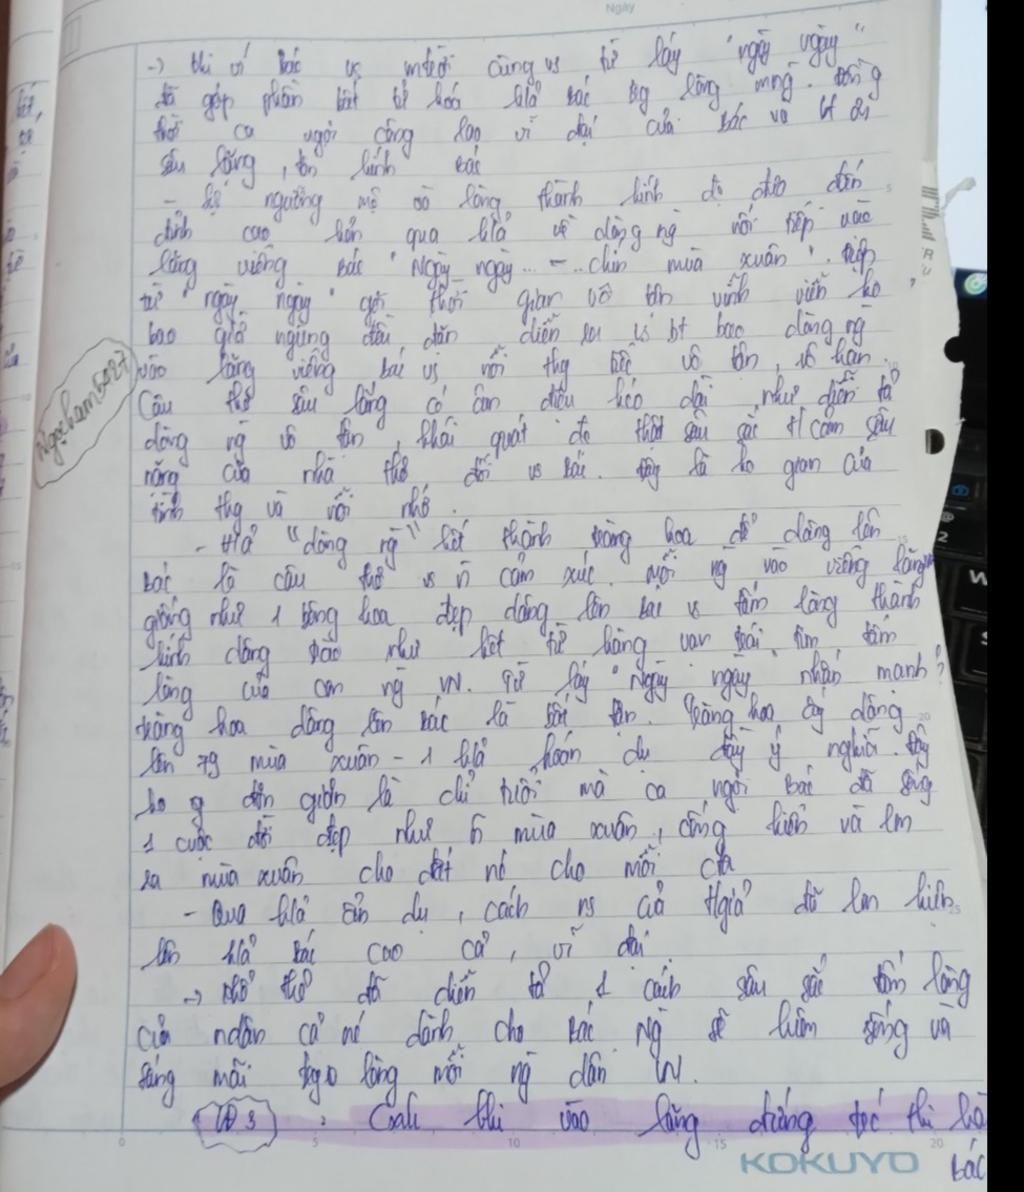 Ngày
-> Khi ví Bác vs mtrời cùng vs từ láy "ngày ngày"
đã góp phần bất tử hoá hả Bác tg lòng mng. Đồng
thời ca ngợi công lao vĩ đại của Bác và
sâu lắng, tôn kính Bác
- Sự ngưỡng mộ và lòng thành kính đc đưa đến
đỉnh cao hơn qua hả về dòng ng nối tiếp vào
lăng viếng Bác "Ngày ngày... - ...chín mùa xuân". Điệp
từ "ngày ngày" gợi thời gian vô tận vĩnh viễn ko
bao giờ ngừng đều đặn diễn ra vs bt bao dòng ng
vào lăng viếng Bác vs nỗi thg tiếc vô tận, vô hạn.
Ngocham5427
Câu thơ sâu lắng có âm điệu kéo dài, như diễn tả
dòng ng vô tận, khái quát đc thật sâu sắc t/cảm sâu
nặng của nhà thơ đối vs Bác. Đây là ko gian của
tình thg và nỗi nhớ.
- Hả "dòng ng" kết thành tràng hoa để dâng lên
Bác là câu thơ vs n cảm xúc. Mỗi ng vào viếng lăng
giống như 1 bông hoa đẹp dâng lên Bác vs tấm lòng thành
kính dâng trào như kết từ hàng vạn trái tim tấm
lòng của con ng VN. Từ láy "Ngày ngày" nhấn mạnh
tràng hoa dâng lên Bác là bất tận. Tràng hoa ấy dâng
lên 79 mùa xuân - 1 hả hoán dụ đầy ý nghĩa. Đây
ko đơn giản là chỉ tuổi mà ca ngợi Bác đã sống
1 cuộc đời đẹp như n mùa xuân, cống hiến và lm
ra mùa xuân cho đất nc cho mỗi
- Qua hả ẩn dụ, cách ns của t/giả đã lm hiện
lên hả Bác cao cả, vĩ đại
-> Khổ thơ đã diễn tả 1 cách sâu sắc tấm lòng
của ndân cả nc dành cho Bác Ng sẽ luôn sống và
sáng mãi trg lòng mỗi ng dân VN.
LĐ 3 : Cảnh khi vào lăng đứng trc thi hà
Bác
KOKUYO